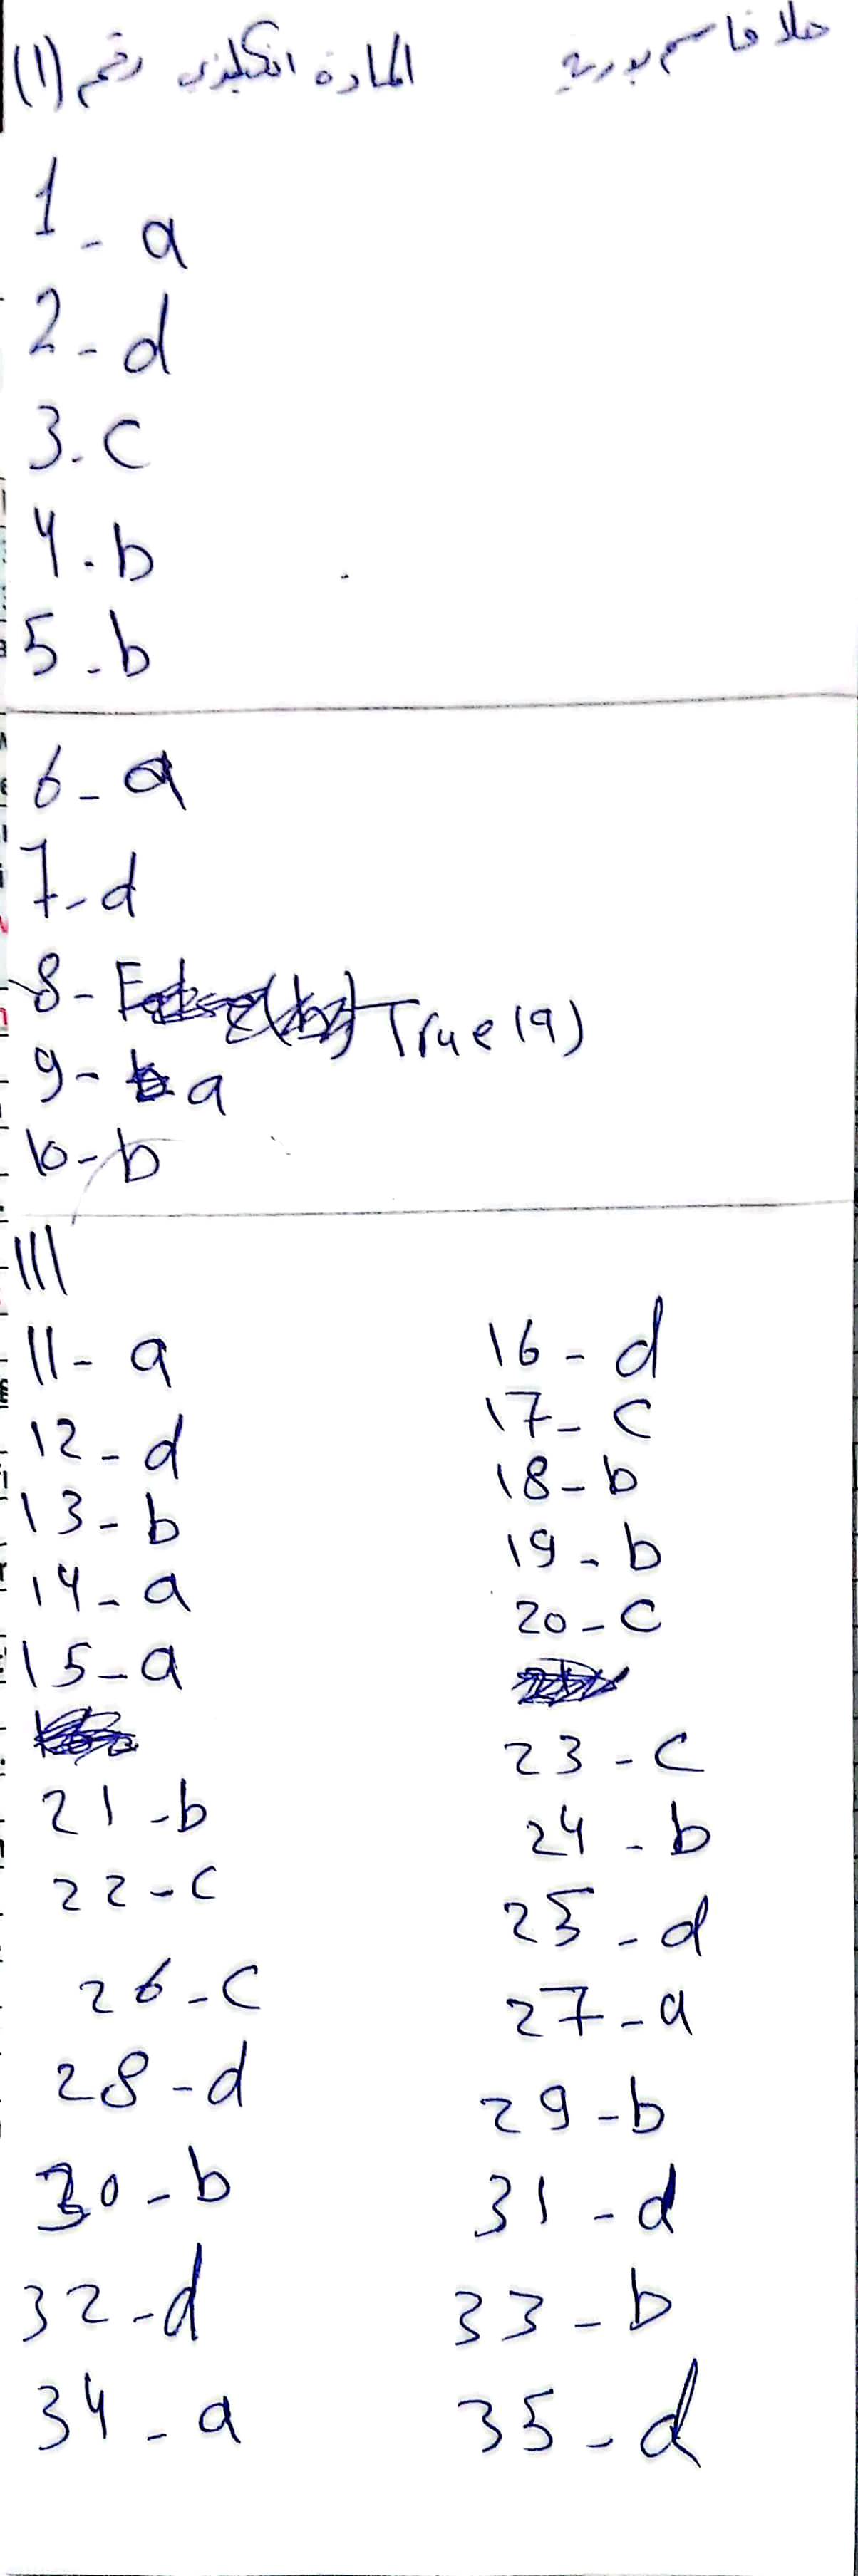 حلا قاسم بوريه المادة انكليزي رقم (1)
1 - a
2 - d
3 - c
4 - b
5 - b
6 - a
7 - d
8 - True (a)
9 - a
10 - b
III
11 - a
12 - d
13 - b
14 - a
15 - a
16 - d
17 - c
18 - b
19 - b
20 - c
21 - b
22 - c
23 - c
24 - b
25 - d
26 - c
27 - a
28 - d
29 - b
30 - b
31 - d
32 - d
33 - b
34 - a
35 - d